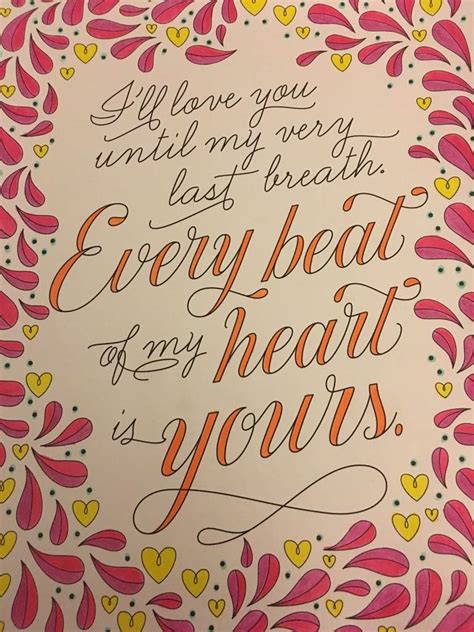 I'll love you
until my very
last breath.
Every beat
of my heart
is yours.